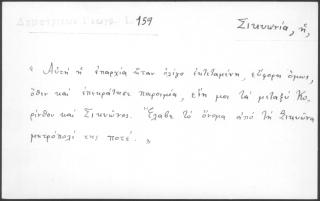 Δημητρίεως Γεωγρ. 159
Σικυωνία, ἡ,
« Αὐτή ἡ ἐπαρχία ἦταν ὀλίγο ἐκτεταμένη, εὔφορη ὅμως,
ὅθεν καί ἐπεκράτησε παροιμία, εἴη μοι τά μεταξύ Κο-
ρίνθου καί Σικυῶνος. Ἔλαβε τό ὄνομα ἀπό τή Σικυῶνα
μητρόπολί της ποτέ. »